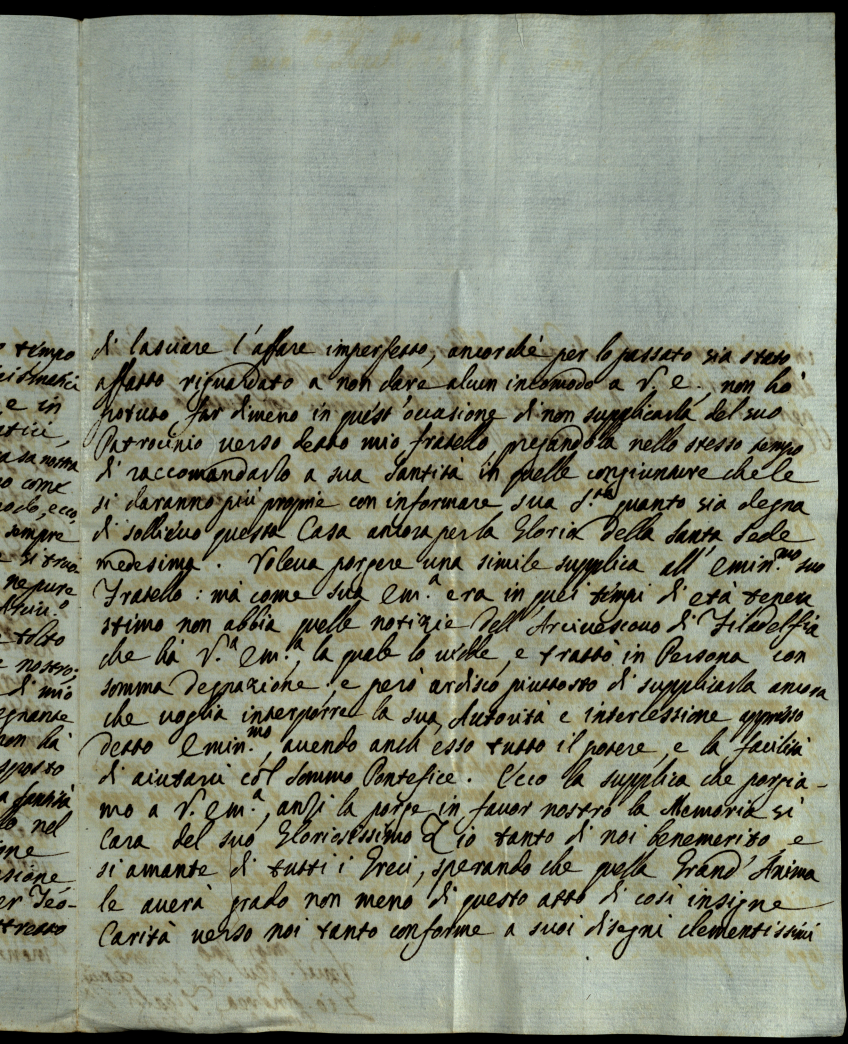 di lasciare l'affare imperfetto, ancorchè per lo passato sia stato
affatto riguardato a non dare alcun incomodo a V. e., non hò
potuto far dimeno in quest'occasione di non supplicarla del suo
Patrocinio verso detto mio fratello pregandola nello stesso tempo
di raccomandarlo a sua Santità in quelle congiunture che le
si daranno più proprie con informare sua S.tà quanto sia degna
di sollievo questa Casa ancora per la Gloria della Santa Sede
medesima. Voleva porgere una simile supplica all'Emin.mo suo
Fratello: mà come sua em.a era in quei tempi di età tenera
stimo non abbia quelle notizie dell'Arcivescovo di Filadelfia
che hà V.a Em.a, la quale lo vidde, e trattò in Persona con
somma degnazione, e però ardisco piuttosto di supplicarla ancora
che voglia interporre la sua Autorità e intercessione appresso
detto Emin.mo, avendo anch'esso tutto il potere, e la facilità
di aiutarci col Sommo Pontefice. Ecco la supplica che porgia-
mo a V. Em.a, anzi la porge in favor nostro la Memoria sì
cara del suo Gloriosissimo Zio tanto di noi benemerito e
si amante di tutti i Greci, sperando che quella Grand'Anima
le averà grado non meno di questo atto di così insigne
Carità verso noi tanto conforme a suoi disegni clementissimi
tempo
e in
nostra
come
ecco
sempre
ne pure
tolto
nostro;
di mio
non hà
nel